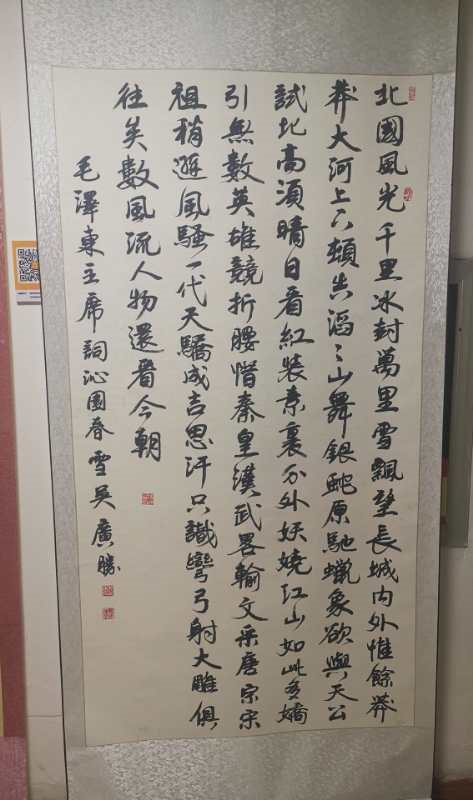 北國風光千里冰封萬里雪飄望長城内外惟餘莽
莽大河上下頓失滔〻山舞銀蛇原馳蠟象欲與天公
試比高須晴日看紅裝素裹分外妖嬈江山如此多嬌
引無數英雄競折腰惜秦皇漢武畧輸文采唐宗宋
祖稍遜風騷一代天驕成吉思汗只識彎弓射大雕俱
往矣數風流人物還看今朝
毛澤東主席詞沁園春雪吳廣勝